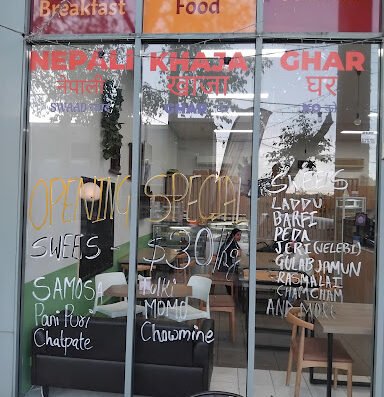 Breakfast
Food
NEPALI KHAJA GHAR
नेपाली खाजा घर
OPENING SPECIAL
SWEETS - $30/kg
SAMOSA
Pani Puri
Chatpate
MOMO
Chowmine
SWEETS
LADDU
BARFI
PEDA
JERI (JELEBI)
GULAB JAMUN
RASMALAI
CHAMCHAM
AND MORE